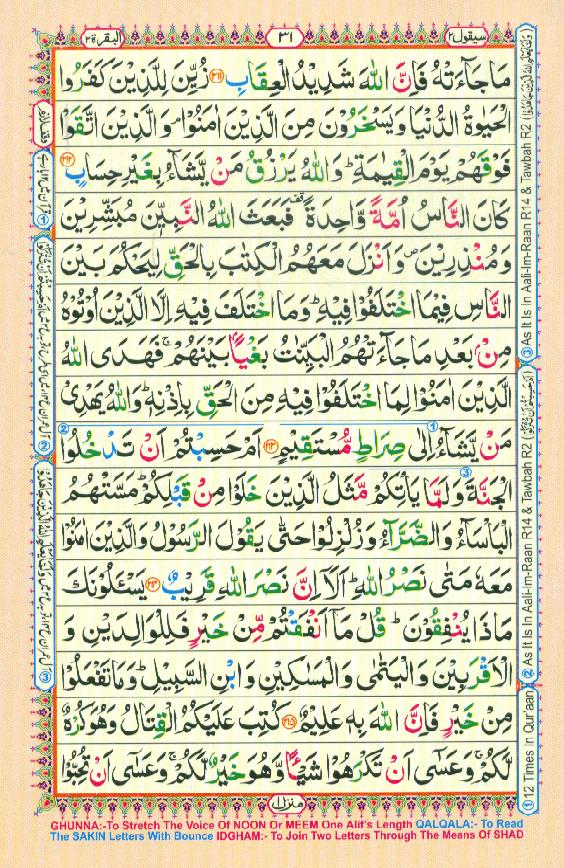 سيقول٢ ٣١ البقرة٢
مَا جَآءَتْهُ فَاِنَّ اللّٰهَ شَدِيْدُ الْعِقَابِ ﴿٢١١﴾ زُيِّنَ لِلَّذِيْنَ كَفَرُوا
الْحَيٰوةُ الدُّنْيَا وَيَسْخَرُوْنَ مِنَ الَّذِيْنَ اٰمَنُوْا ۘ وَالَّذِيْنَ اتَّقَوْا
فَوْقَهُمْ يَوْمَ الْقِيٰمَةِ ؕ وَاللّٰهُ يَرْزُقُ مَنْ يَّشَآءُ بِغَيْرِ حِسَابٍ ﴿٢١٢﴾
كَانَ النَّاسُ اُمَّةً وَّاحِدَةً ۟ فَبَعَثَ اللّٰهُ النَّبِيّٖنَ مُبَشِّرِيْنَ
وَمُنْذِرِيْنَ ۪ وَاَنْزَلَ مَعَهُمُ الْكِتٰبَ بِالْحَقِّ لِيَحْكُمَ بَيْنَ
النَّاسِ فِيْمَا اخْتَلَفُوْا فِيْهِ ؕ وَمَا اخْتَلَفَ فِيْهِ اِلَّا الَّذِيْنَ اُوْتُوْهُ
مِنْۢ بَعْدِ مَا جَآءَتْهُمُ الْبَيِّنٰتُ بَغْيًۢا بَيْنَهُمْ ۚ فَهَدَى اللّٰهُ
الَّذِيْنَ اٰمَنُوْا لِمَا اخْتَلَفُوْا فِيْهِ مِنَ الْحَقِّ بِاِذْنِهٖ ؕ وَاللّٰهُ يَهْدِيْ
مَنْ يَّشَآءُ اِلٰى صِرَاطٍ مُّسْتَقِيْمٍ ﴿٢١٣﴾ اَمْ حَسِبْتُمْ اَنْ تَدْخُلُوا
الْجَنَّةَ وَلَمَّا يَاْتِكُمْ مَّثَلُ الَّذِيْنَ خَلَوْا مِنْ قَبْلِكُمْ ؕ مَسَّتْهُمُ
الْبَاْسَآءُ وَالضَّرَّآءُ وَزُلْزِلُوْا حَتّٰى يَقُوْلَ الرَّسُوْلُ وَالَّذِيْنَ اٰمَنُوْا
مَعَهٗ مَتٰى نَصْرُ اللّٰهِ ؕ اَلَاۤ اِنَّ نَصْرَ اللّٰهِ قَرِيْبٌ ﴿٢١٤﴾ يَسْـَٔلُوْنَكَ
مَاذَا يُنْفِقُوْنَ ؕ قُلْ مَاۤ اَنْفَقْتُمْ مِّنْ خَيْرٍ فَلِلْوَالِدَيْنِ وَ
الْاَقْرَبِيْنَ وَالْيَتٰمٰى وَالْمَسٰكِيْنِ وَابْنِ السَّبِيْلِ ؕ وَمَا تَفْعَلُوْا
مِنْ خَيْرٍ فَاِنَّ اللّٰهَ بِهٖ عَلِيْمٌ ﴿٢١٥﴾ كُتِبَ عَلَيْكُمُ الْقِتَالُ وَهُوَ كُرْهٌ
لَّكُمْ ۚ وَعَسٰۤى اَنْ تَكْرَهُوْا شَيْـًٔا وَّهُوَ خَيْرٌ لَّكُمْ ۚ وَعَسٰۤى اَنْ تُحِبُّوْا
منزل
GHUNNA:-To Stretch The Voice Of NOON Or MEEM One Alif's Length QALQALA:- To Read
The SAKIN Letters With Bounce IDGHAM:- To Join Two Letters Through The Means Of SHAD
① 12 Times In Quraan
② As It Is In Aali-Im-Raan R14 & Tawbah R2
③ As It Is In Aali-Im-Raan R14 & Tawbah R2